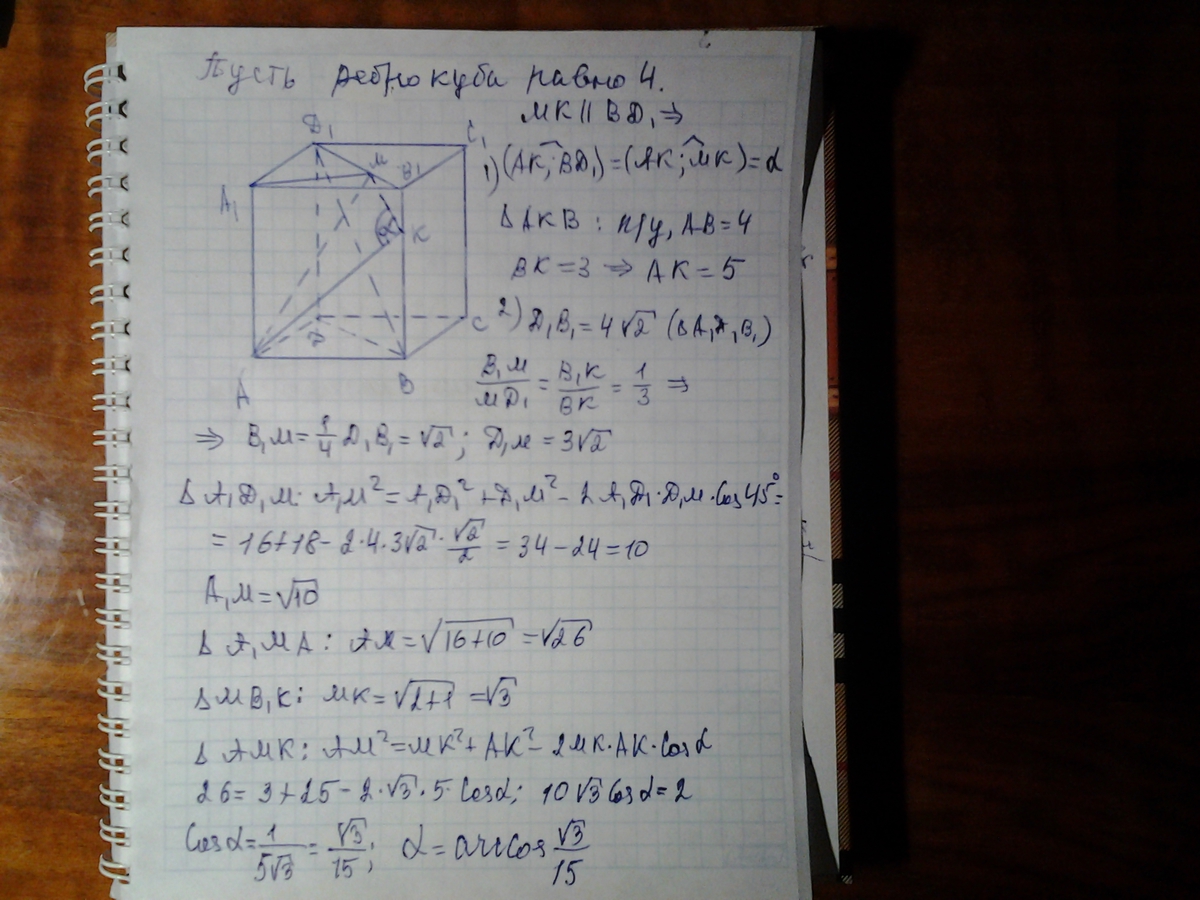 Пусть ребро куба равно 4.
MK || BD₁ ⇒
D₁
C₁
M
B₁
A₁
K
α
D
C
A
B
1) (AK; BD₁) = (AK; MK) = α
Δ AKB : п/у, AB = 4
BK = 3 ⇒ AK = 5
2) D₁B₁ = 4√2 (Δ A₁D₁B₁)
B₁M/MD₁ = B₁K/BK = 1/3 ⇒
⇒ B₁M = 1/4 D₁B₁ = √2 ; D₁M = 3√2
Δ A₁D₁M: A₁M² = A₁D₁² + D₁M² - 2A₁D₁·D₁M·Cos45° =
= 16+18 - 2·4·3√2·√2/2 = 34 - 24 = 10
A₁M = √10
Δ A₁MA : AM = √(16+10) = √26
Δ MB₁K : MK = √(2+1) = √3
Δ AMK : AM² = MK² + AK² - 2MK·AK·Cosα
26 = 3 + 25 - 2·√3·5·Cosα; 10√3 Cosα = 2
Cosα = 1/5√3 = √3/15; α = arccos √3/15